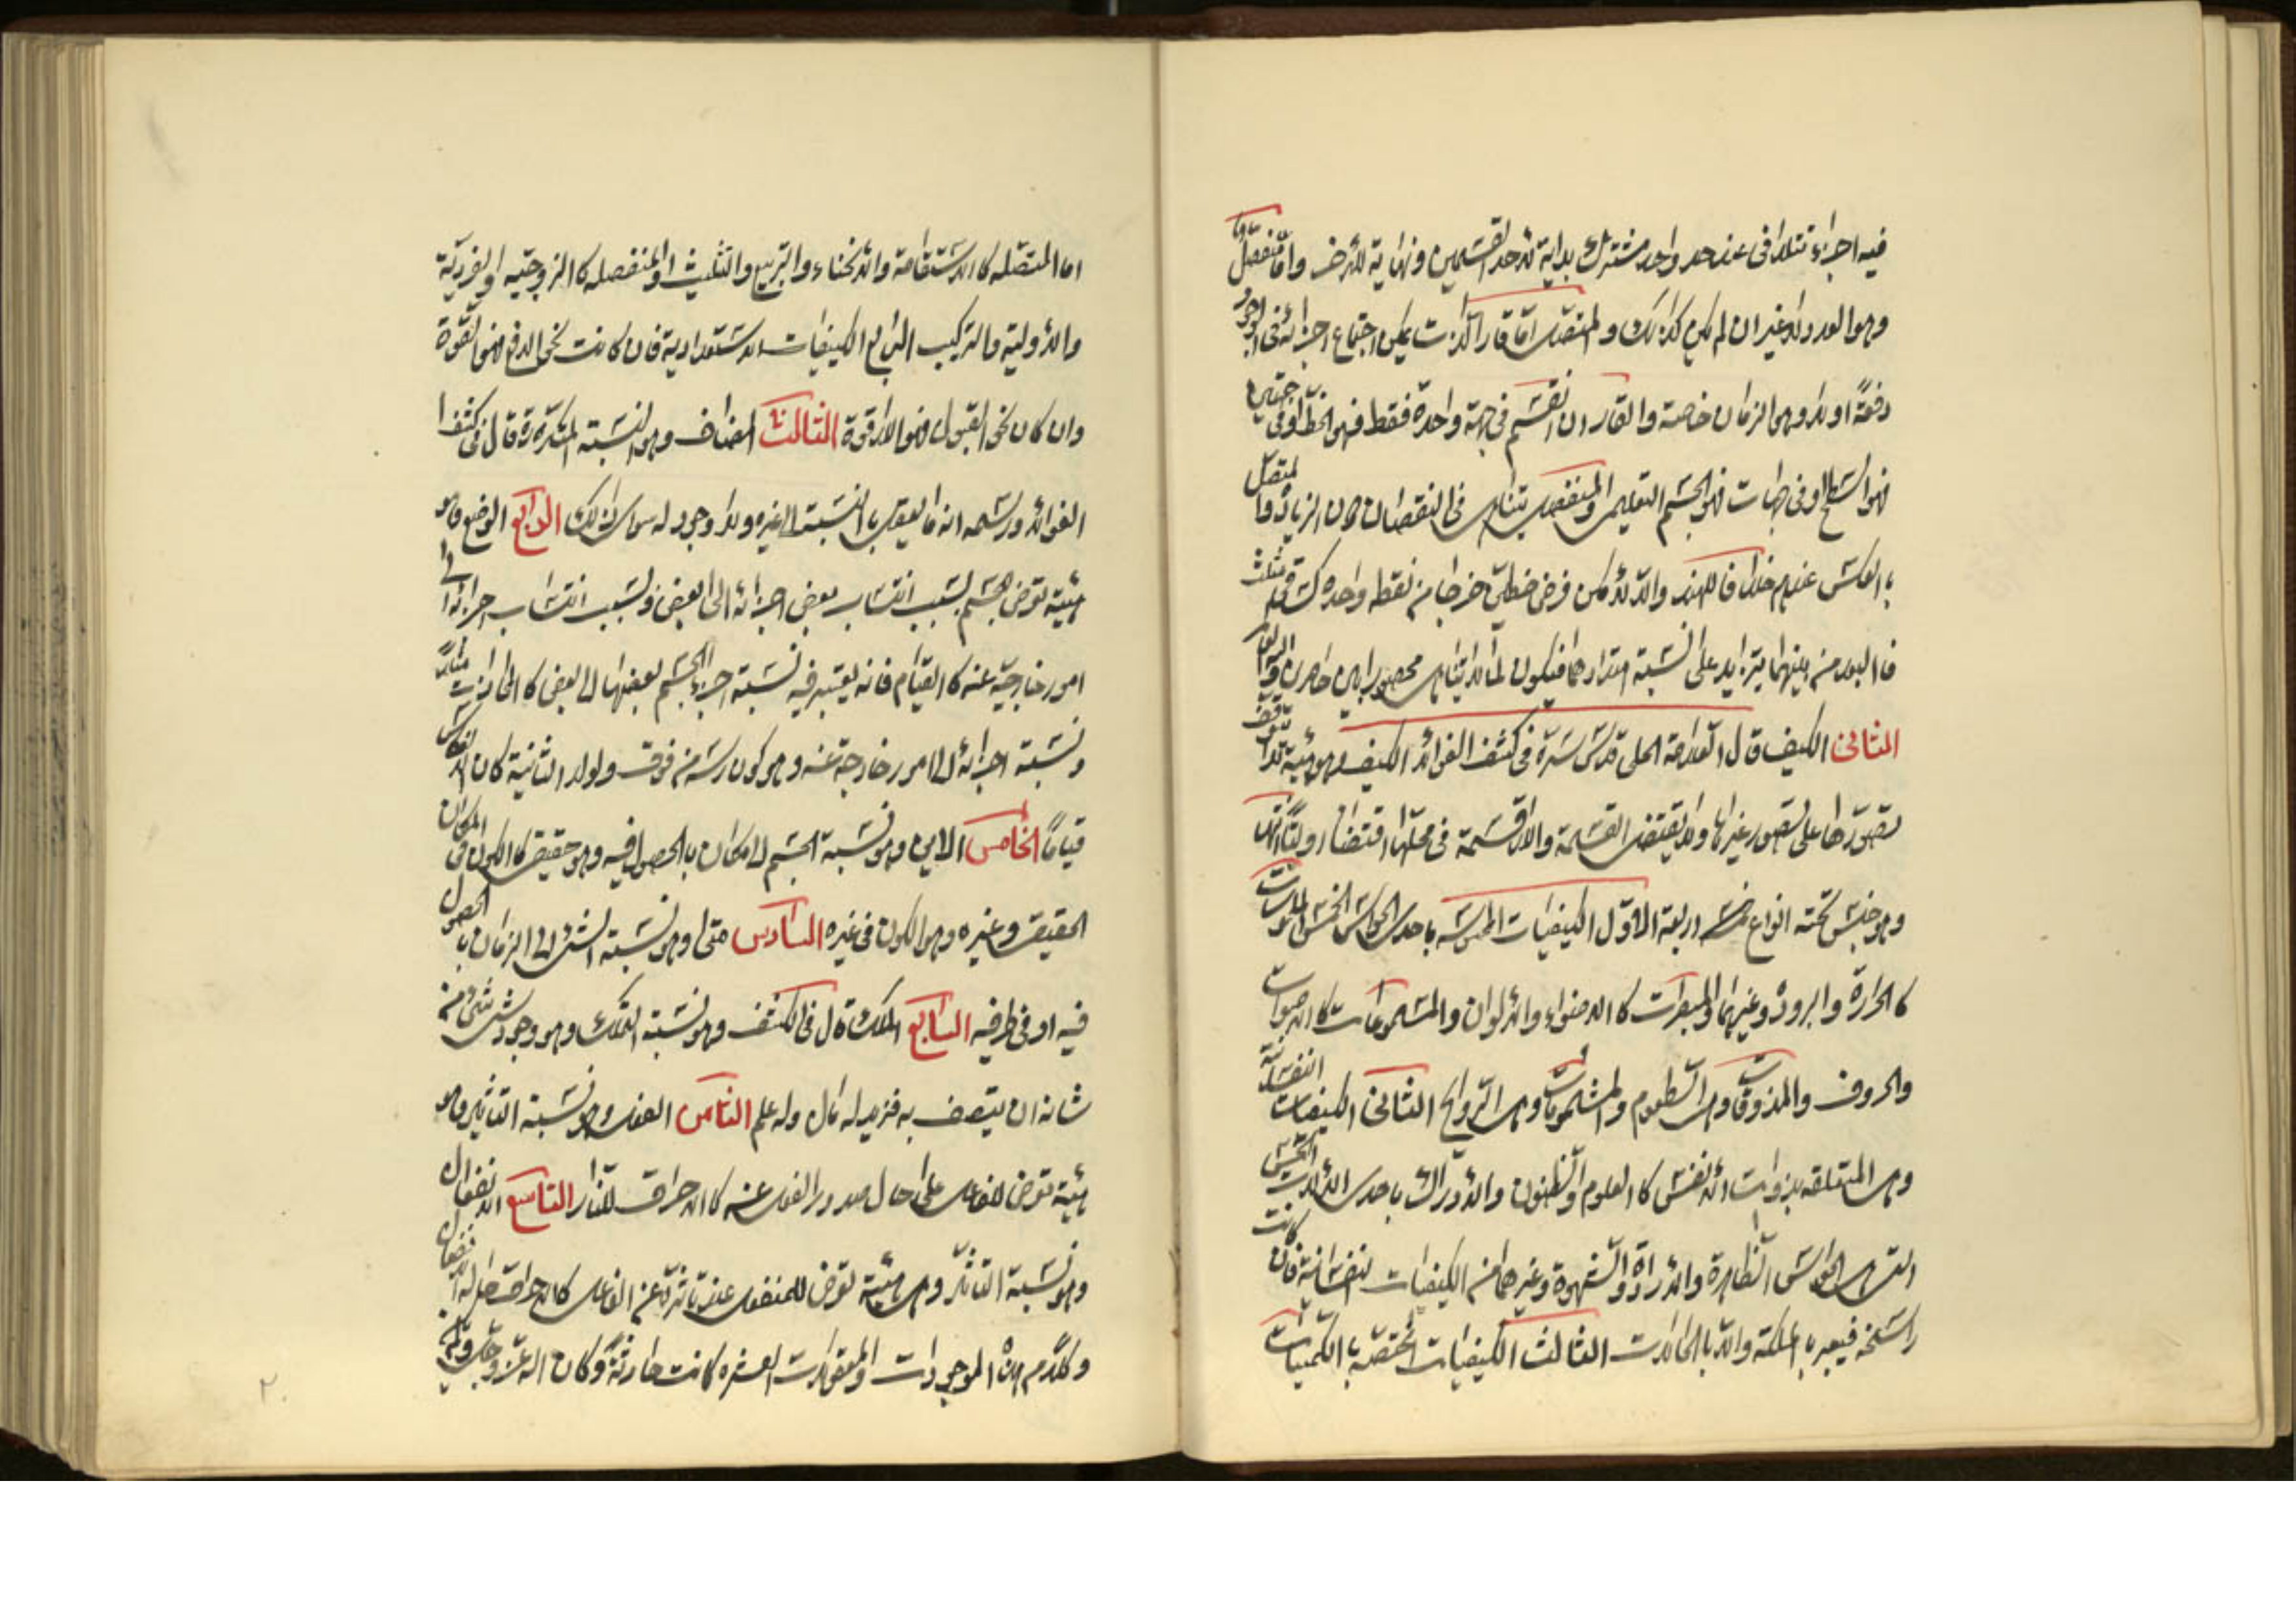 فيه اجزاء تتلاقى عند حد واحد مشترك بداية لاحد القسمين ونهاية للاخر واما منفصل
وهو العدد لا غير ان لم يكن كذلك والمتصل اما قار الذات يمكن اجتماع اجزائه في
دفعة او لا وهو الزمان خاصة والقار ان انقسم في جهة واحدة فقط فهو الخط او في جهتين
فهو السطح او في جهات فهو الجسم التعليمي والمنفصل يتناهى في النقصان دون الزيادة والمتصل
بالعكس عندهم خلافا للهند والا لامكن فرض خطين خرجا من نقطه واحده كساقي مثلث
فالبعد من بينهما يتزايد على نسبة امتدادهما فيكون ما لا يتناهى محصورا بين حاصرين
الثاني الكيف قال العلامة الحلي قدس سره في كشف الفوائد الكيف وهو هيئة لا يتوقف
تصورها على تصور غيرها ولا يقتضى القسمة واللاقسمة في محلها اقتضاء اوليا
وهو جنس تحته انواع اربعة الاول الكيفيات المحسوسه باحدى الحواس الخمس الملموسات
كالحرارة والبرودة وغيرهما والمبصرات كالاضواء والالوان والمسموعات كالاصوات
والحروف والمذوقات وهى الطعوم والمشمومات وهى الروايح الثاني الكيفيات النفسانية
وهى المتعلقه بذوات الانفس كالعلوم والظنون والادراك باحدى الالات الخمس
التى هى الحواس الظاهرة والارادة والشهوة وغيرهما من الكيفيات النفسانية فان كانت
راسخه فيعبر بالملكة والا بالحالات الثالث الكيفيات المختصة بالكميات
اما المتصله كالاستقامة والانحناء والتربيع والتثليث او المنفصله كالزوجيه او الفردية
والاولية والتركيب الرابع الكيفيات الاستعدادية فان كانت نحو الدفع فهو القوة
وان كان نحو القبول فهو اللاقوة الثالث المضاف وهو النسبة المتكررة قال في كشف
الفوائد ورسمه انه ما يعقل بالنسبة الى غيره ولا وجود له سوى ذلك الرابع الوضع وهو
هيئة تعرض للجسم بسبب انتساب بعض اجزائه الى البعض وبسبب انتساب اجزائه الى
امور خارجية عنه كالقيام فانه يعتبر فيه نسبة اجزاء الجسم بعضها الى بعض كالمحاذات مثلا
ونسبة اجزائه الى امور خارجة عنه وهو كون رأسه من فوق ولولا الثانية كان الانعكاس
قياما الخامس الاين وهو نسبة الجسم الى مكان بالحصول فيه وهو حقيقى كالكون في المكان
الحقيقى وغيره وهو الكون في غيره السادس متى وهو نسبة الشئ الى الزمان بالحصول
فيه او في طرفيه السابع الملك قال في الكشف وهو نسبة التملك وهو وجود شئ شئ من
شانه ان يتصف به فزيد له مال وله علم الثامن الفعل وهو نسبة التاثير وهو
هيئة تعرض للفاعل على حال صدور الفعل عنه كالاحراق للنار التاسع الانفعال
وهو نسبة التاثر وهى هيئة تعرض للمنفعل عند تاثره عن الفاعل كالاحراق حال الانفعال
وكلام هذه الموجودات والمقولات العشره كانت حادثة وكان الله عز وجل ولم
٢٠